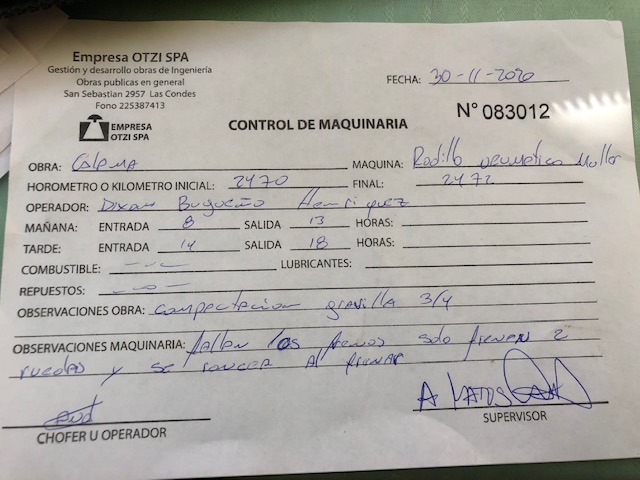 Empresa OTZI SPA
Gestión y desarrollo obras de Ingeniería
Obras publicas en general
San Sebastian 2957 Las Condes
Fono 225387413
EMPRESA
OTZI SPA
FECHA: 30-11-2020
CONTROL DE MAQUINARIA N° 083012
OBRA: MAQUINA: Rodillo neumatico Muller
HOROMETRO O KILOMETRO INICIAL: 2470 FINAL: 2472
OPERADOR: Henriquez
MAÑANA: ENTRADA 8 SALIDA 13 HORAS:
TARDE: ENTRADA 14 SALIDA 18 HORAS:
COMBUSTIBLE: LUBRICANTES:
REPUESTOS:
OBSERVACIONES OBRA: Compactacion gravilla 3/4
OBSERVACIONES MAQUINARIA: fallan los frenos solo frenan 2
ruedas y se al frenar
CHOFER U OPERADOR
SUPERVISOR